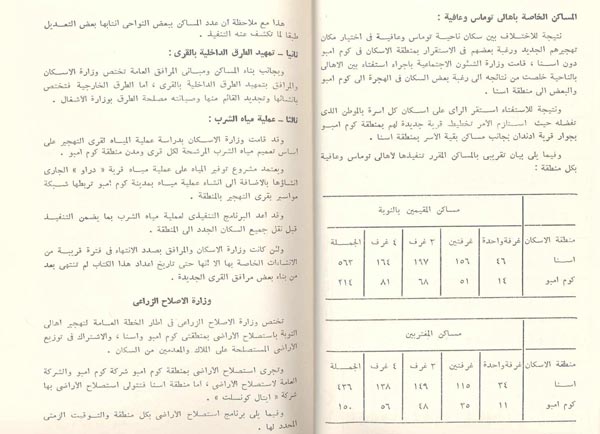 المساكن الخاصة بأهالى توماس وعافية :
نتيجة للاختلاف بين سكان ناحية توماس وعافية فى اختيار مكان
تهجيرهم الجديد ورغبة بعضهم فى الاستقرار بمنطقة الاسكان فى كوم امبو
دون اسنا ، قامت وزارة الشئون الاجتماعية باجراء استفتاء بين الاهالى
بالناحية خلصت من نتائجه الى رغبة بعض السكان فى الهجرة الى كوم امبو
والبعض الى منطقة اسنا .
ونتيجة للاستفتاء استقر الرأى على اسكان كل اسرة بالموطن الذى
تفضله حيث استلزم الأمر تخطيط قرية جديدة لهم بمنطقة كوم امبو
بجوار قرية ادندان بجانب مساكن بقية الأسر بمنطقة اسنا .
وفيما يلى بيان تقريبى بالمساكن المقرر تنفيذها لاهالى توماس وعافية
بكل منطقة :
مساكن المقيمين بالنوبة
منطقة الاسكان غرفة واحدة غرفتين ٣ غرف ٤ غرف الجملة
اسنا ٤٦ ١٥٦ ١٩٧ ١٦٤ ٥٦٣
كوم امبو ١٤ ٥١ ٦٨ ٨١ ٢١٤
مساكن المغتربين
منطقة الاسكان غرفة واحدة غرفتين ٣ غرف ٤ غرف الجملة
اسنا ٣٤ ١١٥ ١٤٩ ١٣٨ ٤٣٦
كوم امبو ١١ ٣٥ ٤٨ ٥٦ ١٥٠
هذا مع ملاحظة ان عدد المساكن ببعض النواحى انتابها بعض التعديل
طبقا لما تكشف عنه التنفيذ .
ثانيا – تمهيد الطرق الداخلية بالقرى :
وبجانب بناء المساكن ومبانى المرافق العامة تختص وزارة الاسكان
والمرافق بتمهيد الطرق الداخلية بالقرى ، اما الطرق الخارجية فتختص
بانشائها وتجديد القائم منها وصيانته مصلحة الطرق بوزارة الاشغال .
ثالثا – عملية مياه الشرب :
وقد قامت وزارة الاسكان بدراسة عملية المياه لقرى التهجير على
اساس تعميم مياه الشرب المرشحة لكل قرى ومدن منطقة كوم امبو .
ويعتمد مشروع توفير المياه على عملية مياه قرية « دراو » الجارى
انشاؤها بالاضافة الى انشاء عملية مياه بمدينة كوم امبو تربطها شبكة
مواسير بقرى التهجير بالمنطقة .
وقد اعد البرنامج التنفيذى لعملية مياه الشرب بما يضمن التنفيذ
قبل نقل جميع السكان الجدد الى المنطقة .
ولئن كانت وزارة الاسكان والمرافق بصدد الانتهاء فى فترة قريبة من
الانشاءات الخاصة بها الا انها حتى تاريخ اعداد هذا الكتاب لم تنتهى بعد
من بناء بعض مرافق القرى الجديدة .
وزارة الاصلاح الزراعى
تختص وزارة الاصلاح الزراعى فى اطار الخطة العامة لتهجير اهالى
النوبة باستصلاح الاراضى بمنطقتى كوم امبو واسنا ، والاشتراك فى توزيع
الاراضى المستصلحة على الملاك والمعدمين من السكان .
وتجرى استصلاح الاراضى بمنطقة كوم امبو شركة كوم امبو والشركة
العامة لاستصلاح الاراضى ، اما منطقة اسنا فتتولى استصلاح الاراضى بها
شركة « ايتال كونسلت » .
وفيما يلى برنامج استصلاح الاراضى بكل منطقة والتوقيت الزمنى
المحدد لها .